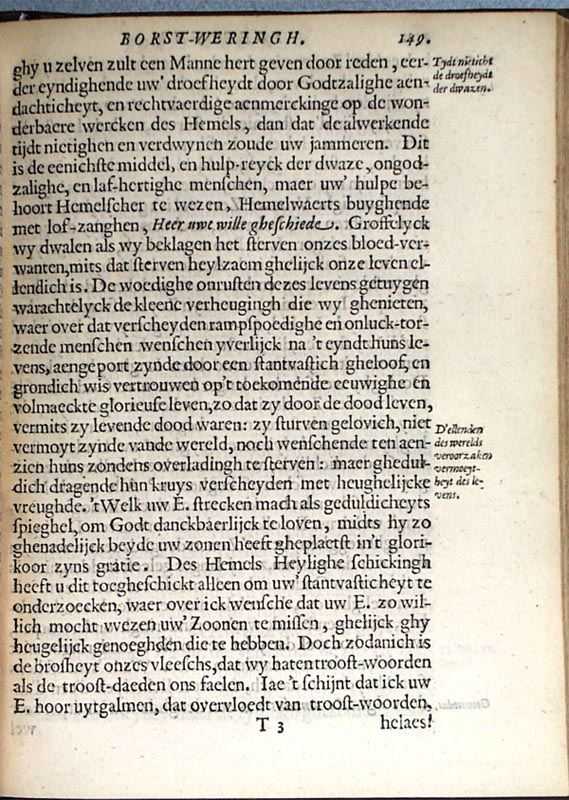 BORST-WERINGH. 149.
ghy u zelven zult een Manne hert geven door reden, eer-
der eyndighende uw' droefheydt door Godtzalighe aen-
dachticheyt, en rechtvaerdige aenmerckinge op de won-
derbaere wercken des Hemels, dan dat de alwerkende
tijdt nietighen en verdwynen zoude uw jammeren. Dit
is de eenichste middel, en hulp-reyck der dwaze, ongod-
zalighe, en laf-hertighe menschen, maer uw' hulpe be-
hoort Hemelscher te wezen, Hemelwaerts buyghende
met lof-zanghen, Heer uwe wille gheschiede. Groffelyck
wy dwalen als wy beklagen het sterven onzes bloed-ver-
wanten, mits dat sterven heylzaem ghelijck onze leven el-
lendich is. De woedighe onrusten dezes levens getuygen
warachtelyck de kleene verheugingh die wy ghenieten,
waer over dat verscheyden rampspoedighe en onluck-tor-
zende menschen wenschen yverlijck na 't eyndt huns le-
vens, aengeport zynde door een stantvastich gheloof, en
grondich wis vertrouwen op't toekomende eeuwighe en
volmaeckte glorieuse leven, zo dat zy door de dood leven,
vermits zy levende dood waren: zy sturven gelovich, niet
vermoyt zynde vande wereld, noch wenschende ten aen-
zien huns zondens overladingh te sterven: maer ghedul-
dich dragende hun kruys verscheyden met heughelijcke
vreughde. 'tWelk uw E. strecken mach als geduldicheyts
spieghel, om Godt danckbaerlijck te loven, midts hy zo
ghenadelijck beyde uw' zonen heeft gheplaetst in't glori-
koor zyns gratie. Des Hemels Heylighe schickingh
heeft u dit toegheschickt alleen om uw' stantvasticheyt te
onderzoecken, waer over ick wensche dat uw E. zo wil-
lich mocht wezen uw' Zoonen te missen, ghelijck ghy
heugelijck genoeghden die te hebben. Doch zodanich is
de brosheyt onzes vleeschs, dat wy haten troost-woorden
als de troost-daeden ons faelen. Iae 't schijnt dat ick uw
E. hoor uytgalmen, dat overvloedt van troost-woorden,
T 3 helaes!
Tydt nieticht
de droefheydt
der dwazen.
D'ellenden
des werelds
veroorzaken
vermoeyt-
heyt des le-
vens.